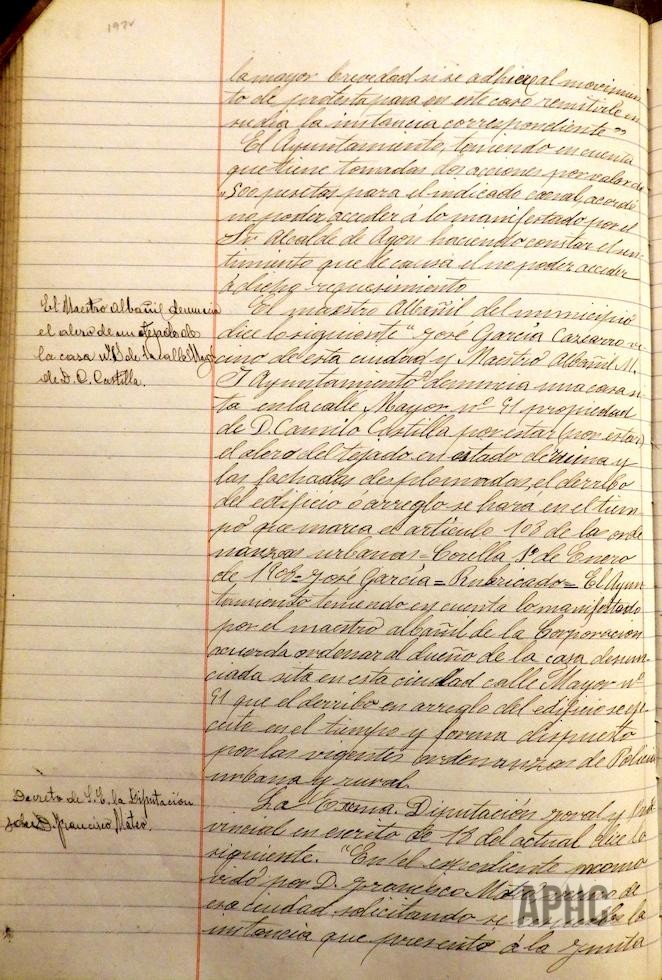 1972
la mayor brevedad si se adhiere al movimien
to de protesta para en este caso remitirle en
su dia la instancia correspondiente"
El Ayuntamiento, teniendo en cuenta
que tiene tomadas dos acciones por valor de
500 pesetas para el indicado canal, acordó
no poder acceder á lo manifestado por el
Sr. Alcalde de haciendo constar el sen-
timiento que le causa el no poder acceder
á dicho requerimiento
El Maestro Albañil denuncia
el alero de un tejado de
la casa de la calle Mayor
de D. C. Castilla.
El maestro Albañil del municipio
dice lo siguiente "José García ve-
cino de esta ciudad y Maestro Albañil M.
I. Ayuntamiento denuncia una casa si
ta en la calle Mayor nº 91 propiedad
de D. Camilo Castilla por estar (por estar)
el alero del tejado en estado de ruina y
las fachadas desplomadas, el derribo
del edificio ó arreglo se hará en el tiem-
po que marca el artículo 108 de las orde
nanzas urbanas = Corella 1º de Enero
de 1908 = José García = Rubricado = El Ayun
tamiento teniendo en cuenta lo manifestado
por el maestro albañil de la Corporacion
acuerda ordenar al dueño de la casa denun
ciada sita en esta ciudad calle Mayor nº
91 que el derribo en arreglo del edificio se eje
cute en el tiempo y forma dispuesto
por las vigentes ordenanzas de Policia
urbana y rural.
Decreto de S.E. la Diputación
sobre D. Francisco Mateo.
La Excma. Diputación foral y Pro
vincial en escrito de 18 del actual dice lo
siguiente. "En el expediente promo
vido por D. Francisco de
esa ciudad solicitando se la
instancia que presentó á la Junta
APHC